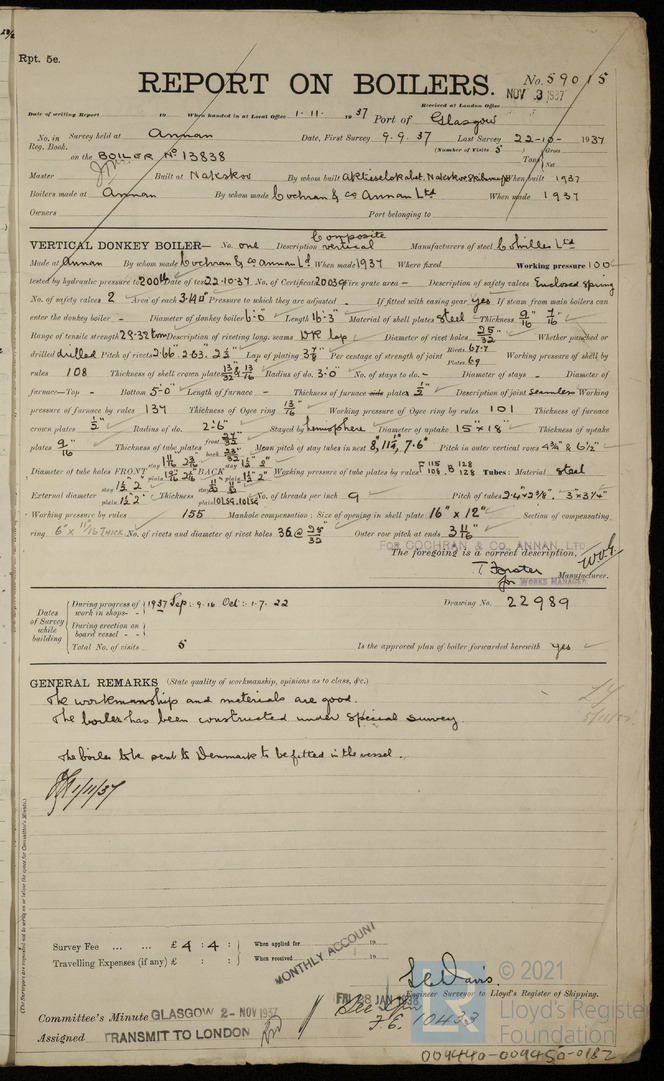 Rpt. 5e.
REPORT ON BOILERS.
No. 59015
NOV 3 1937
Received at London Office
Date of writing Report 19 When handed in at Local Office 1.11. 1937 Port of Glasgow
No. in Survey held at Annan Date, First Survey 9.9.37 Last Survey 22-10- 1937
Reg. Book. (Number of Visits 5) Gross
on the BOILER No 13838 Tons Net
Master Built at Nakskov By whom built When built 1937
Boilers made at Annan By whom made Cochran & Co Annan Ltd When made 1937
Owners Port belonging to
VERTICAL DONKEY BOILER— No. one Description Composite vertical Manufacturers of steel Colvilles Ltd
Made at Annan By whom made Cochran & Co Annan Ld When made 1937 Where fixed Working pressure 100
tested by hydraulic pressure to 200 lb Date of test 22-10-37 No. of Certificate 20039 Fire grate area — Description of safety valves Enclosed spring
No. of safety valves 2 Area of each 3.14" Pressure to which they are adjusted - If fitted with easing gear yes If steam from main boilers can
enter the donkey boiler - Diameter of donkey boiler 6'-0" Length 16'-3" Material of shell plates Steel Thickness 9/16" 7/16"
Range of tensile strength 29-32 tons Description of riveting long. seams DR lap Diameter of rivet holes 25/32" Whether punched or
drilled drilled Pitch of rivets 2.66. 2.63. 2½" Lap of plating 3⅞" Per centage of strength of joint Rivets 67.7 Plates 69 Working pressure of shell by
rules 108 Thickness of shell crown plates 13/32 & 13/16 Radius of do. 3'-0" No. of stays to do. - Diameter of stays - Diameter of
furnace—Top - Bottom 5'-0" Length of furnace - Thickness of furnace plates ½" Description of joint seamless Working
pressure of furnace by rules 137 Thickness of Ogee ring 13/16" Working pressure of Ogee ring by rules 101 Thickness of furnace
crown plates ½" Radius of do. 2'-6" Stayed by hemisphere Diameter of uptake 15" x 18" Thickness of uptake
plates 9/16" Thickness of tube plates front back Mean pitch of stay tubes in nest 8", 11¼", 7.6" Pitch in outer vertical rows 4¾" & 6½"
Diameter of tube holes FRONT stay plain BACK stay plain Working pressure of tube plates by rules F 115 108 B 128 128 Tubes: Material steel
External diameter stay 1½" 2" plain 1½" 2" Thickness No. of threads per inch 9 Pitch of tubes 2.4" x 2⅜" . 3" x 3¼"
Working pressure by rules 155 Manhole compensation: Size of opening in shell plate 16" x 12" Section of compensating
ring 6" x 11/16 THICK. No. of rivets and diameter of rivet holes 36 @ 25/32" Outer row pitch at ends 3 11/16"
FOR COCHRAN & CO. ANNAN, LTD.
The foregoing is a correct description,
T. Forster Manufacturer.
for WORKS MANAGER
Dates of Survey while building
During progress of work in shops - - 1937 Sep: 9.16 Oct: 1.7.22 Drawing No. 22989
During erection on board vessel - -
Total No. of visits 5 Is the approved plan of boiler forwarded herewith yes
GENERAL REMARKS (State quality of workmanship, opinions as to class, &c.)
The workmanship and materials are good.
The boiler has been constructed under Special Survey.
The boiler to be sent to Denmark to be fitted in the vessel.
1/11/37
(The Surveyors are requested not to write on or below the space for Committee's Minute.)
Survey Fee ... ... £ 4 : 4 : When applied for 19
Travelling Expenses (if any) £ : : When received 19
MONTHLY ACCOUNT
Engineer Surveyor to Lloyd's Register of Shipping.
Committee's Minute GLASGOW 2-NOV 1937
FRI 28 JAN 1938
Assigned TRANSMIT TO LONDON
F.E. 10433
© 2021
Lloyd's Register
Foundation
009440-009450-0182